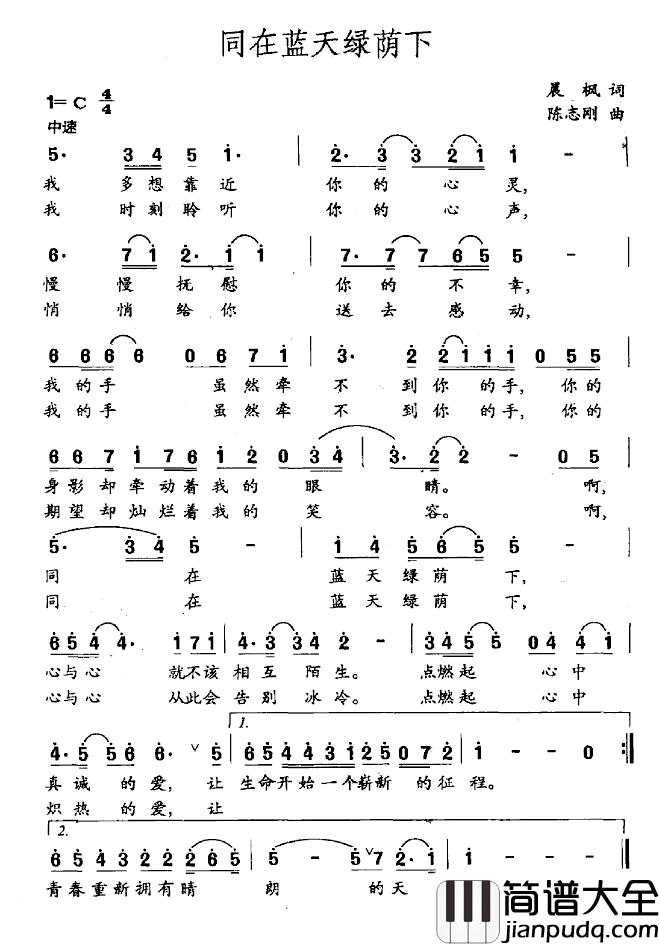 同在蓝天绿荫下
晨 枫 词
1=C 4/4
陈志刚 曲
中速
5· 3 4 5 1· 2· 3 3 2 1 1 -
我 多想靠近 你的 心 灵,
我 时刻聆听 你的 心 声,
6· 7 1 2· 1 1 7· 7 7 6 5 5 -
慢 慢 抚慰 你 的 不 幸,
悄 悄 给你 送 去 感 动,
6 6 6 6 0 6 7 1 3· 2 2 1 1 1 0 5 5
我的手 虽然牵 不 到你 的手, 你的
我的手 虽然牵 不 到你 的手, 你的
6 6 7 1 7 6 1 2 0 3 4 3· 2 2 - 0 5
身影却牵动着我的 眼 睛。 啊,
期望却灿烂着我的 笑 容。 啊,
5· 3 4 5 - 1 4 5 6 5 5 -
同 在 蓝天绿荫 下,
同 在 蓝天绿荫 下,
6 5 4 4· 1 7 1 4· 3 3 4 2 - 3 4 5 5 0 4 4 1
心与心 就不该 相互 陌生。 点燃起 心中
心与心 从此会 告别 冰冷。 点燃起 心中
1.
4· 5 5 6 6· ∨ 5 6 5 4 4 3 1 2 5 0 7 2 1 - - 0
真诚 的爱, 让 生命开始一个崭新 的征程。
炽热 的爱, 让
2.
6 5 4 3 2 2 2 6 5 5 - 5 ∨ 7 2· 1 1
青春重新拥有晴 朗 的天
简谱大全
jianpudq.com